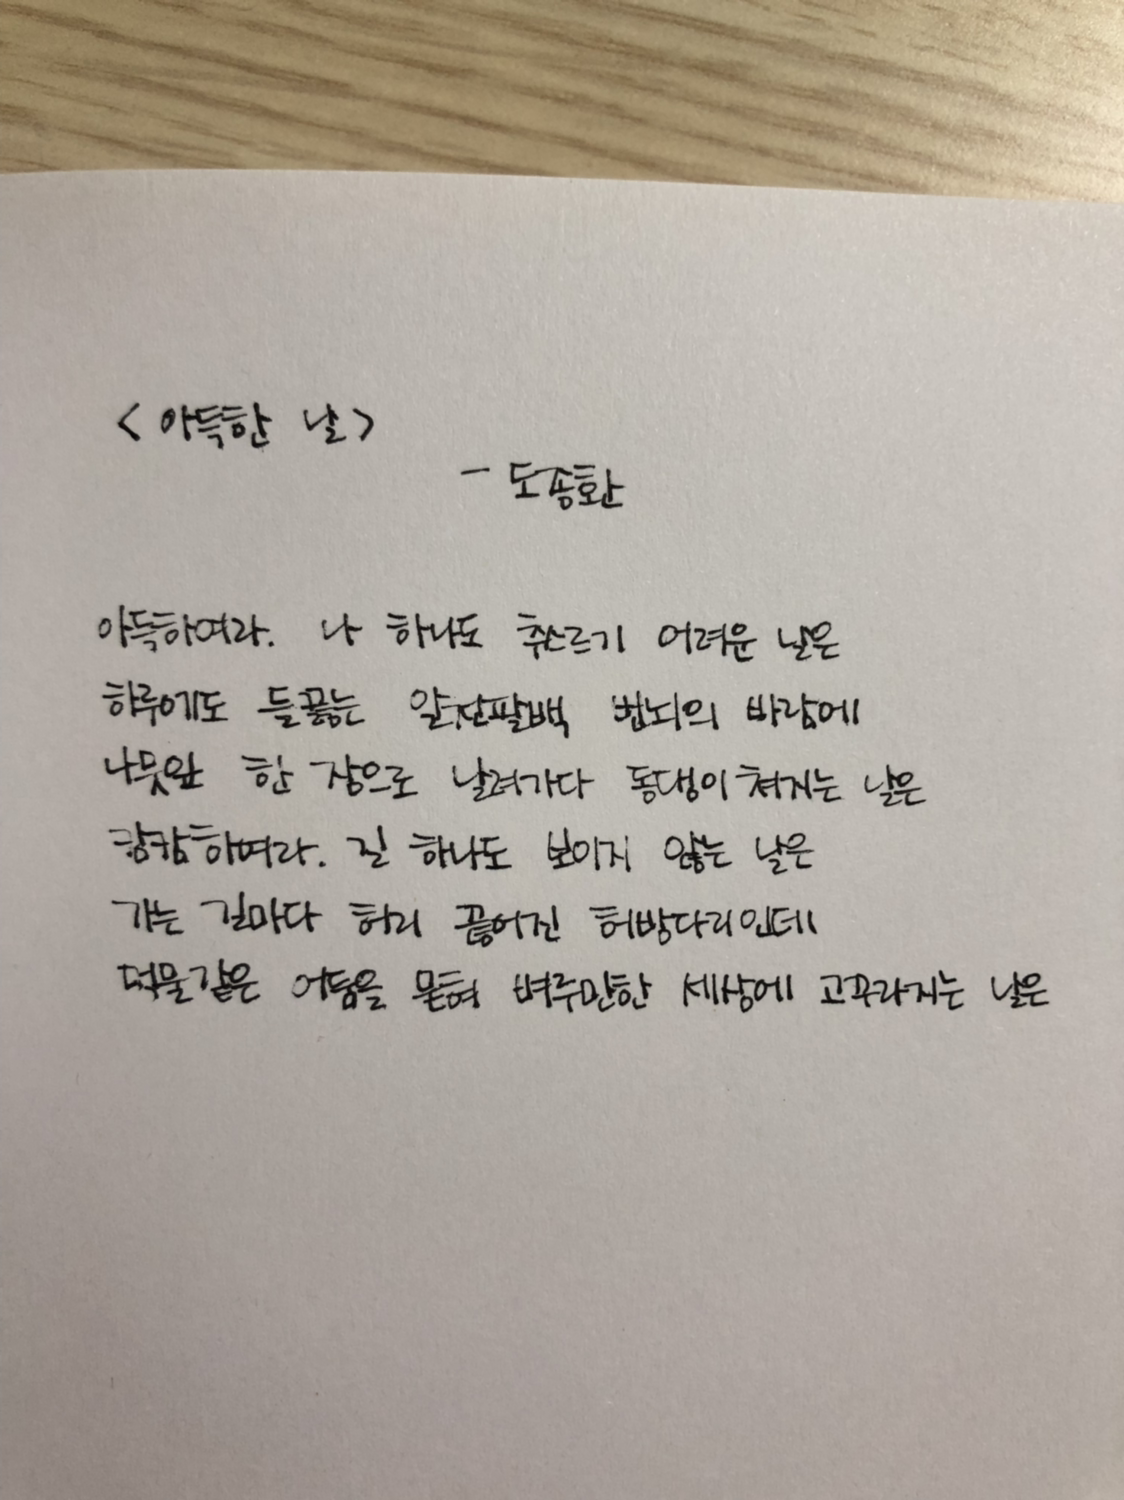 <아득한 날>
- 도종환
아득하여라. 나 하나도 추스르기 어려운 날은
하루에도 들끓는 일천팔백 번뇌의 바람에
나뭇잎 한 장으로 날려가다 동댕이쳐지는 날은
캄캄하여라. 길 하나도 보이지 않는 날은
가는 길마다 허리 끊어진 허방다리인데
먹물같은 어둠을 묻혀 벼루만한 세상에 고꾸라지는 날은